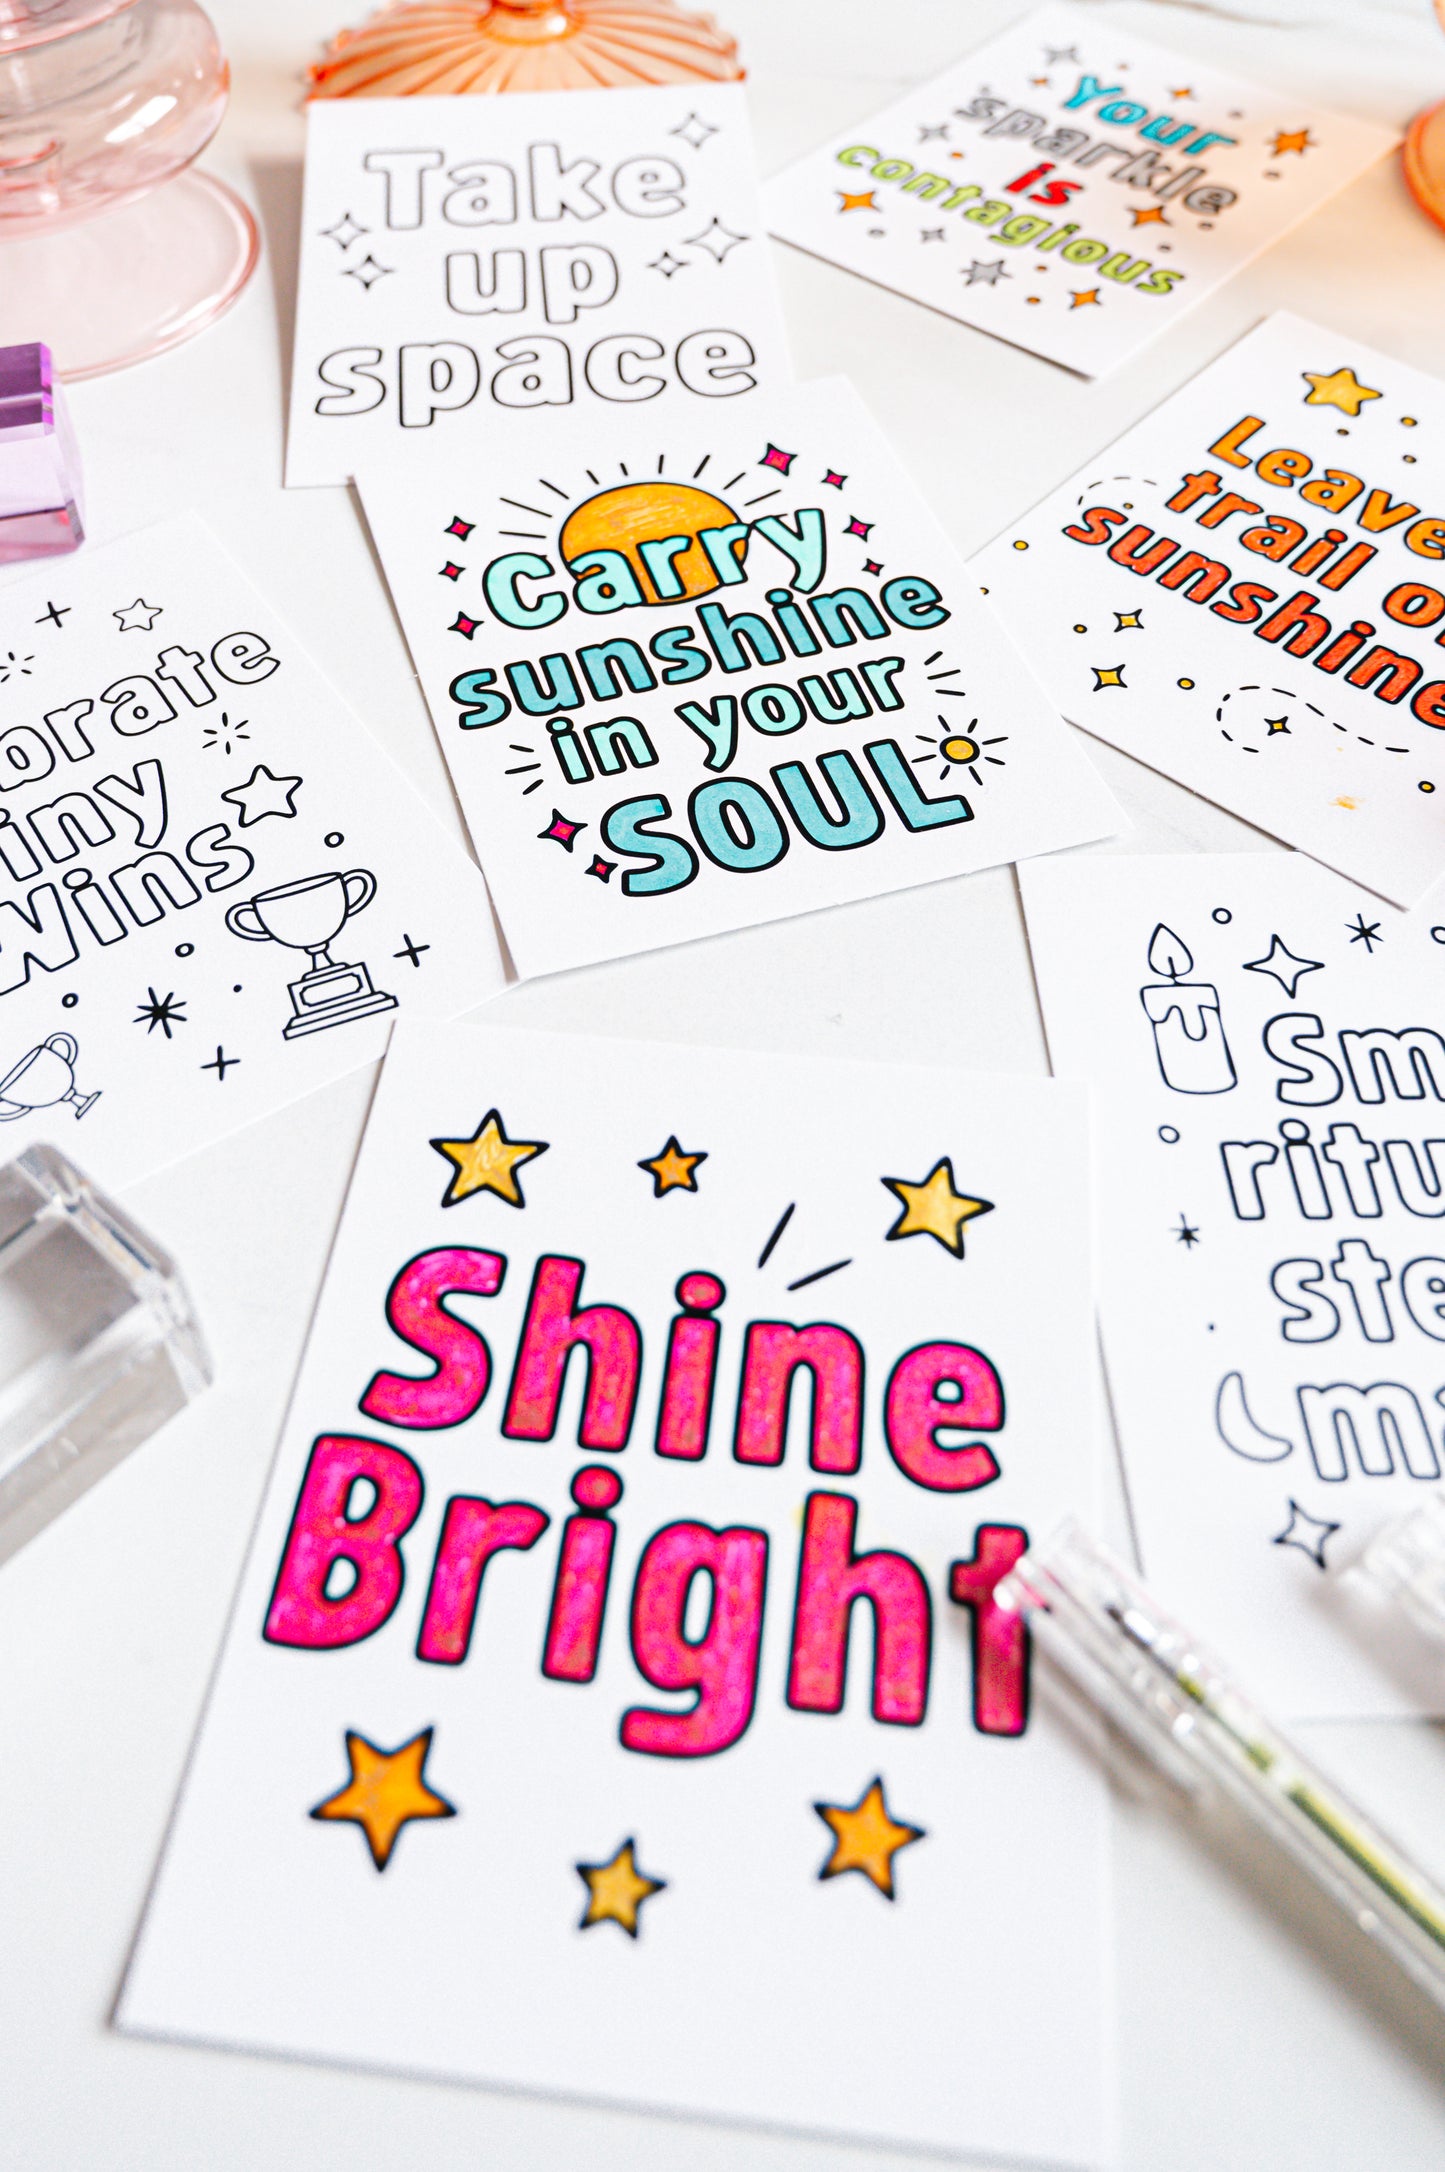 Take
up
space
Your
sparkle
is
contagious
Carry
sunshine
in your
SOUL
Leave
trail
sunshine
Wins
Shine
Bright